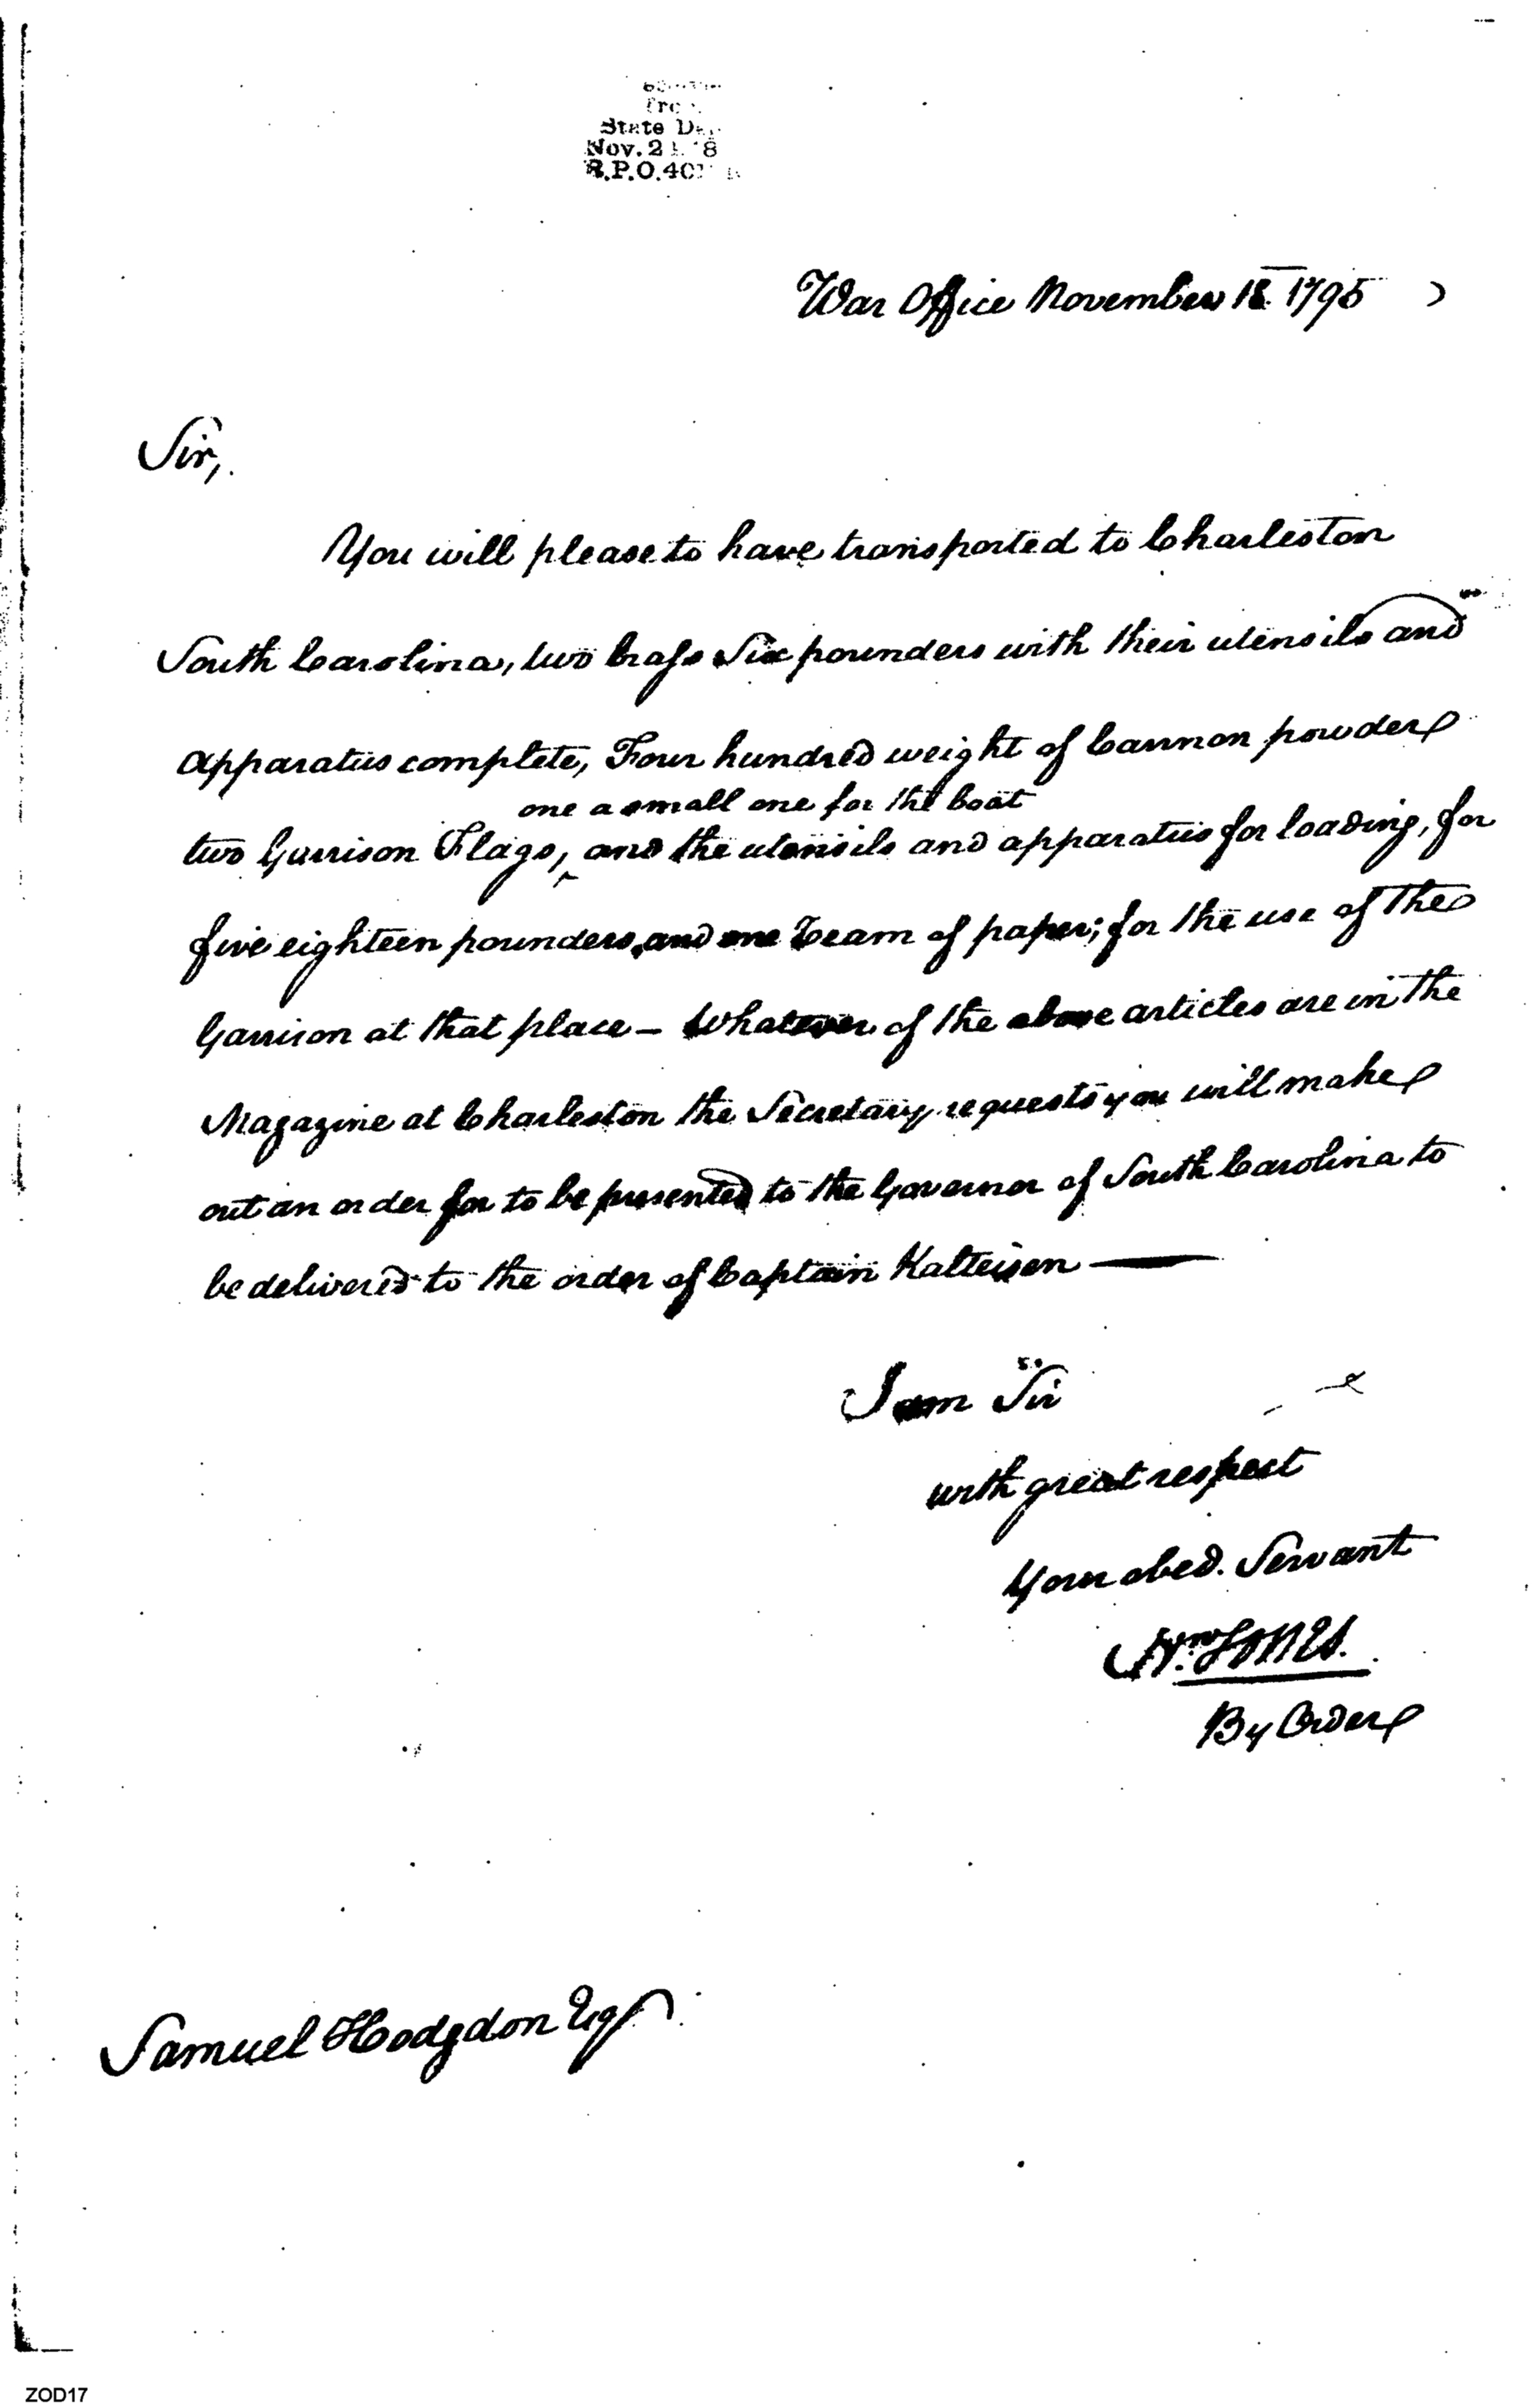 from
State De
Nov. 21. '8
R.P.O. 40
War Office November 18. 1795
Sir,
You will please to have transported to Charleston
South Carolina, two brass Six pounders with their utensils and
apparatus complete, Four hundred weight of Cannon powder
one a small one for the boat
two Garrison Flags, ^ and the utensils and apparatus for loading, for
five eighteen pounders, and one ream of paper; for the use of the
Garrison at that place – Whatever of the above articles are in the
Magazine at Charleston the Secretary requests you will make
out an order for to be presented to the Governor of South Carolina to
be delivered to the order of Captain Kalteisen —
I am Sir
with great respect
Your obed. Servant
Wm Jones.
By Order
Samuel Hodgdon Esqr
ZOD17